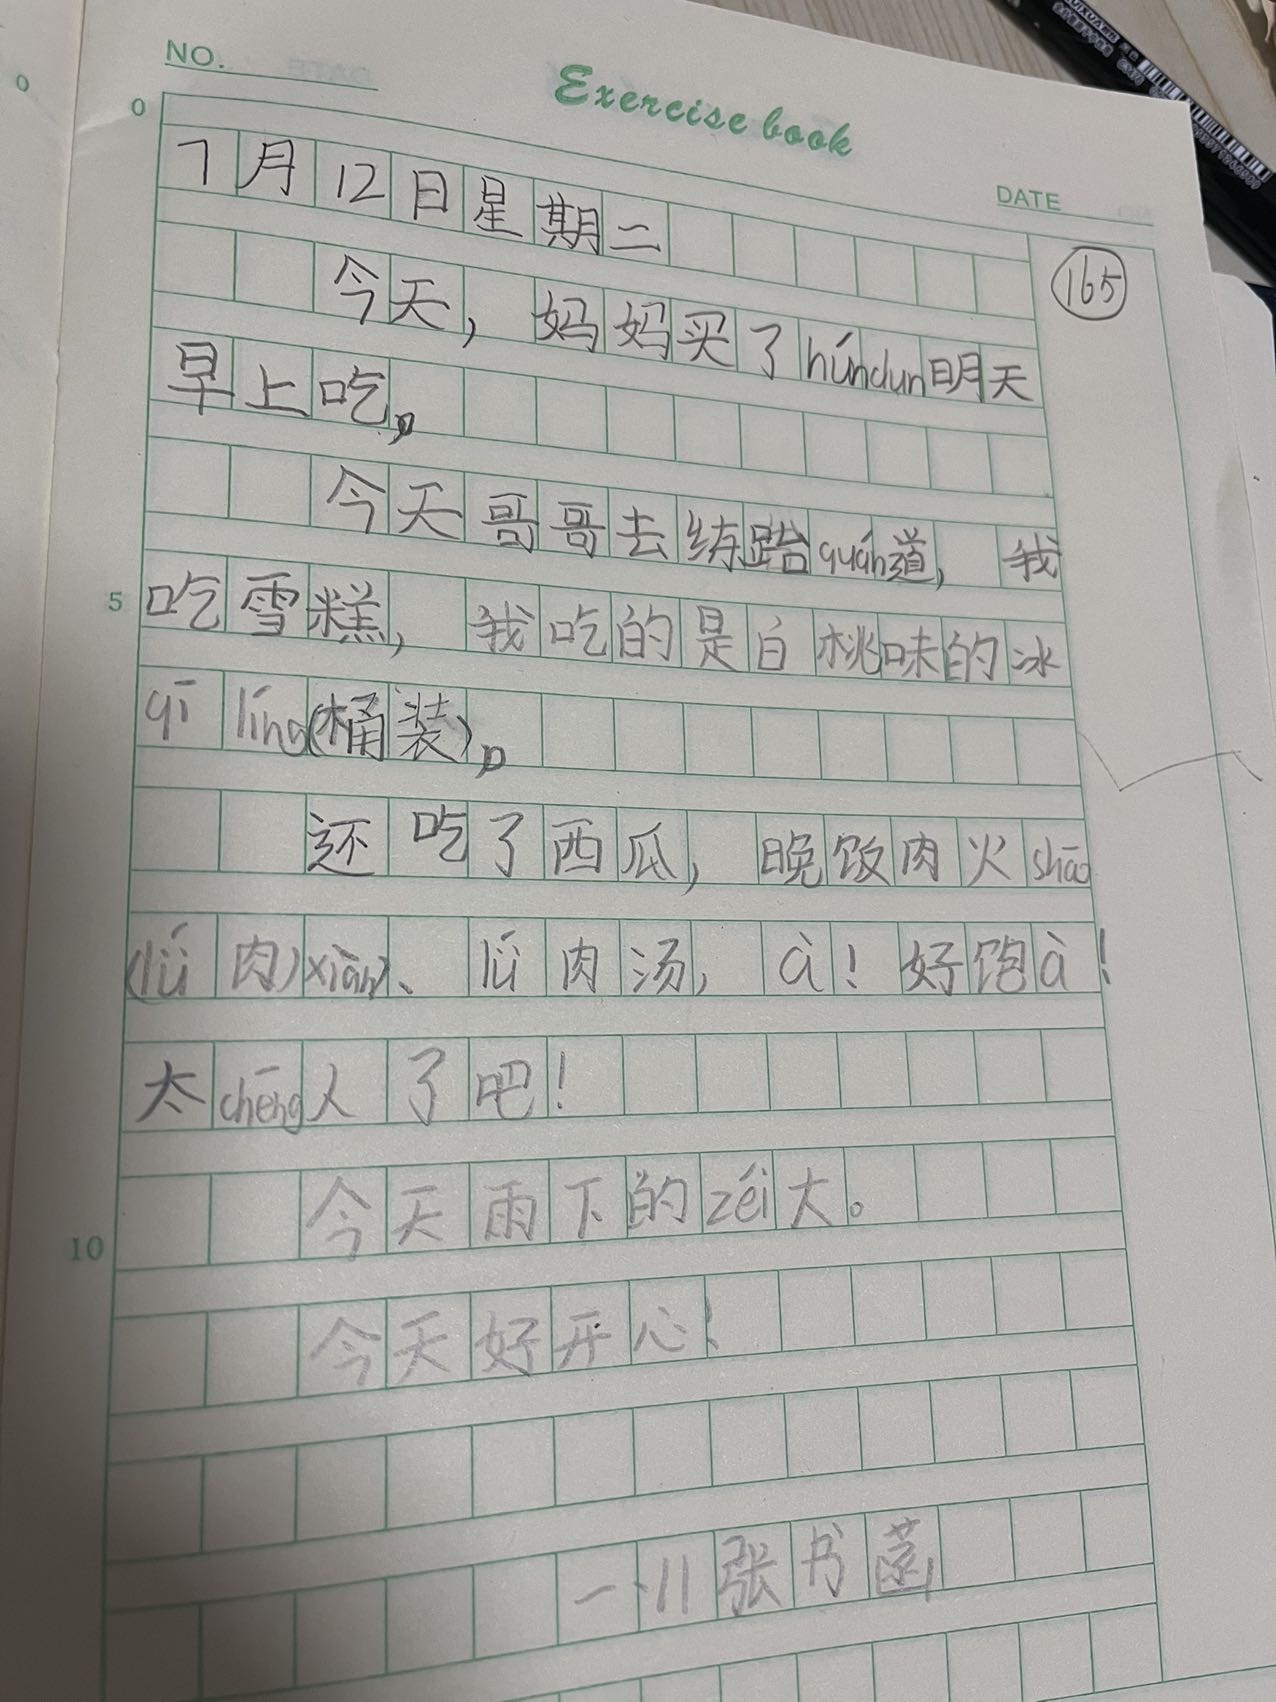 NO.
Exercise book
DATE
0
0
7月12日星期二
165
今天，妈妈买了húndun明天
早上吃。
今天哥哥去练跆quán道，我
5
吃雪糕，我吃的是白桃味的冰
qī líng(桶装)。
还吃了西瓜，晚饭肉火shāo
(lǘ肉)xiàn)、lǘ肉汤，à！好饱à！
太chēng人了吧！
今天雨下的zéi大。
10
今天好开心！
一·11张书菡